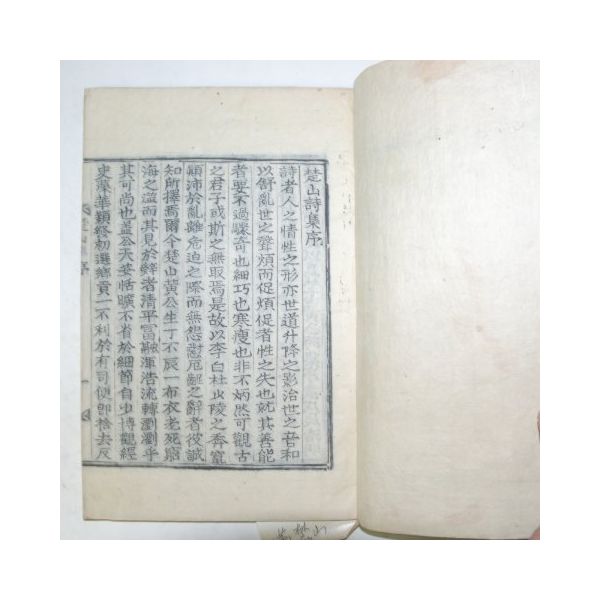 楚山詩集序
詩者人之情性之形亦世道升降之影治世之音和
以舒亂世之聲煩而促煩促者性之失也就其善能
者要不過驟奇也細巧也寒瘦也非不炳然可觀古
之君子或斯之無取焉是故以李白杜少陵之奔竄
顚沛於亂離危迫之際而無怨懟厄齪之辭者彼誠
知所擇焉爾今楚山黃公生丁不辰一布衣老死窮
海之濱而其見於辭者淸平富融渾浩流轉瀏瀏乎
其可尚也盖公天姿恬曠不省於細節自少博觀經
史藻華穎發初選鄕貢一不利於有司便卽捨去反